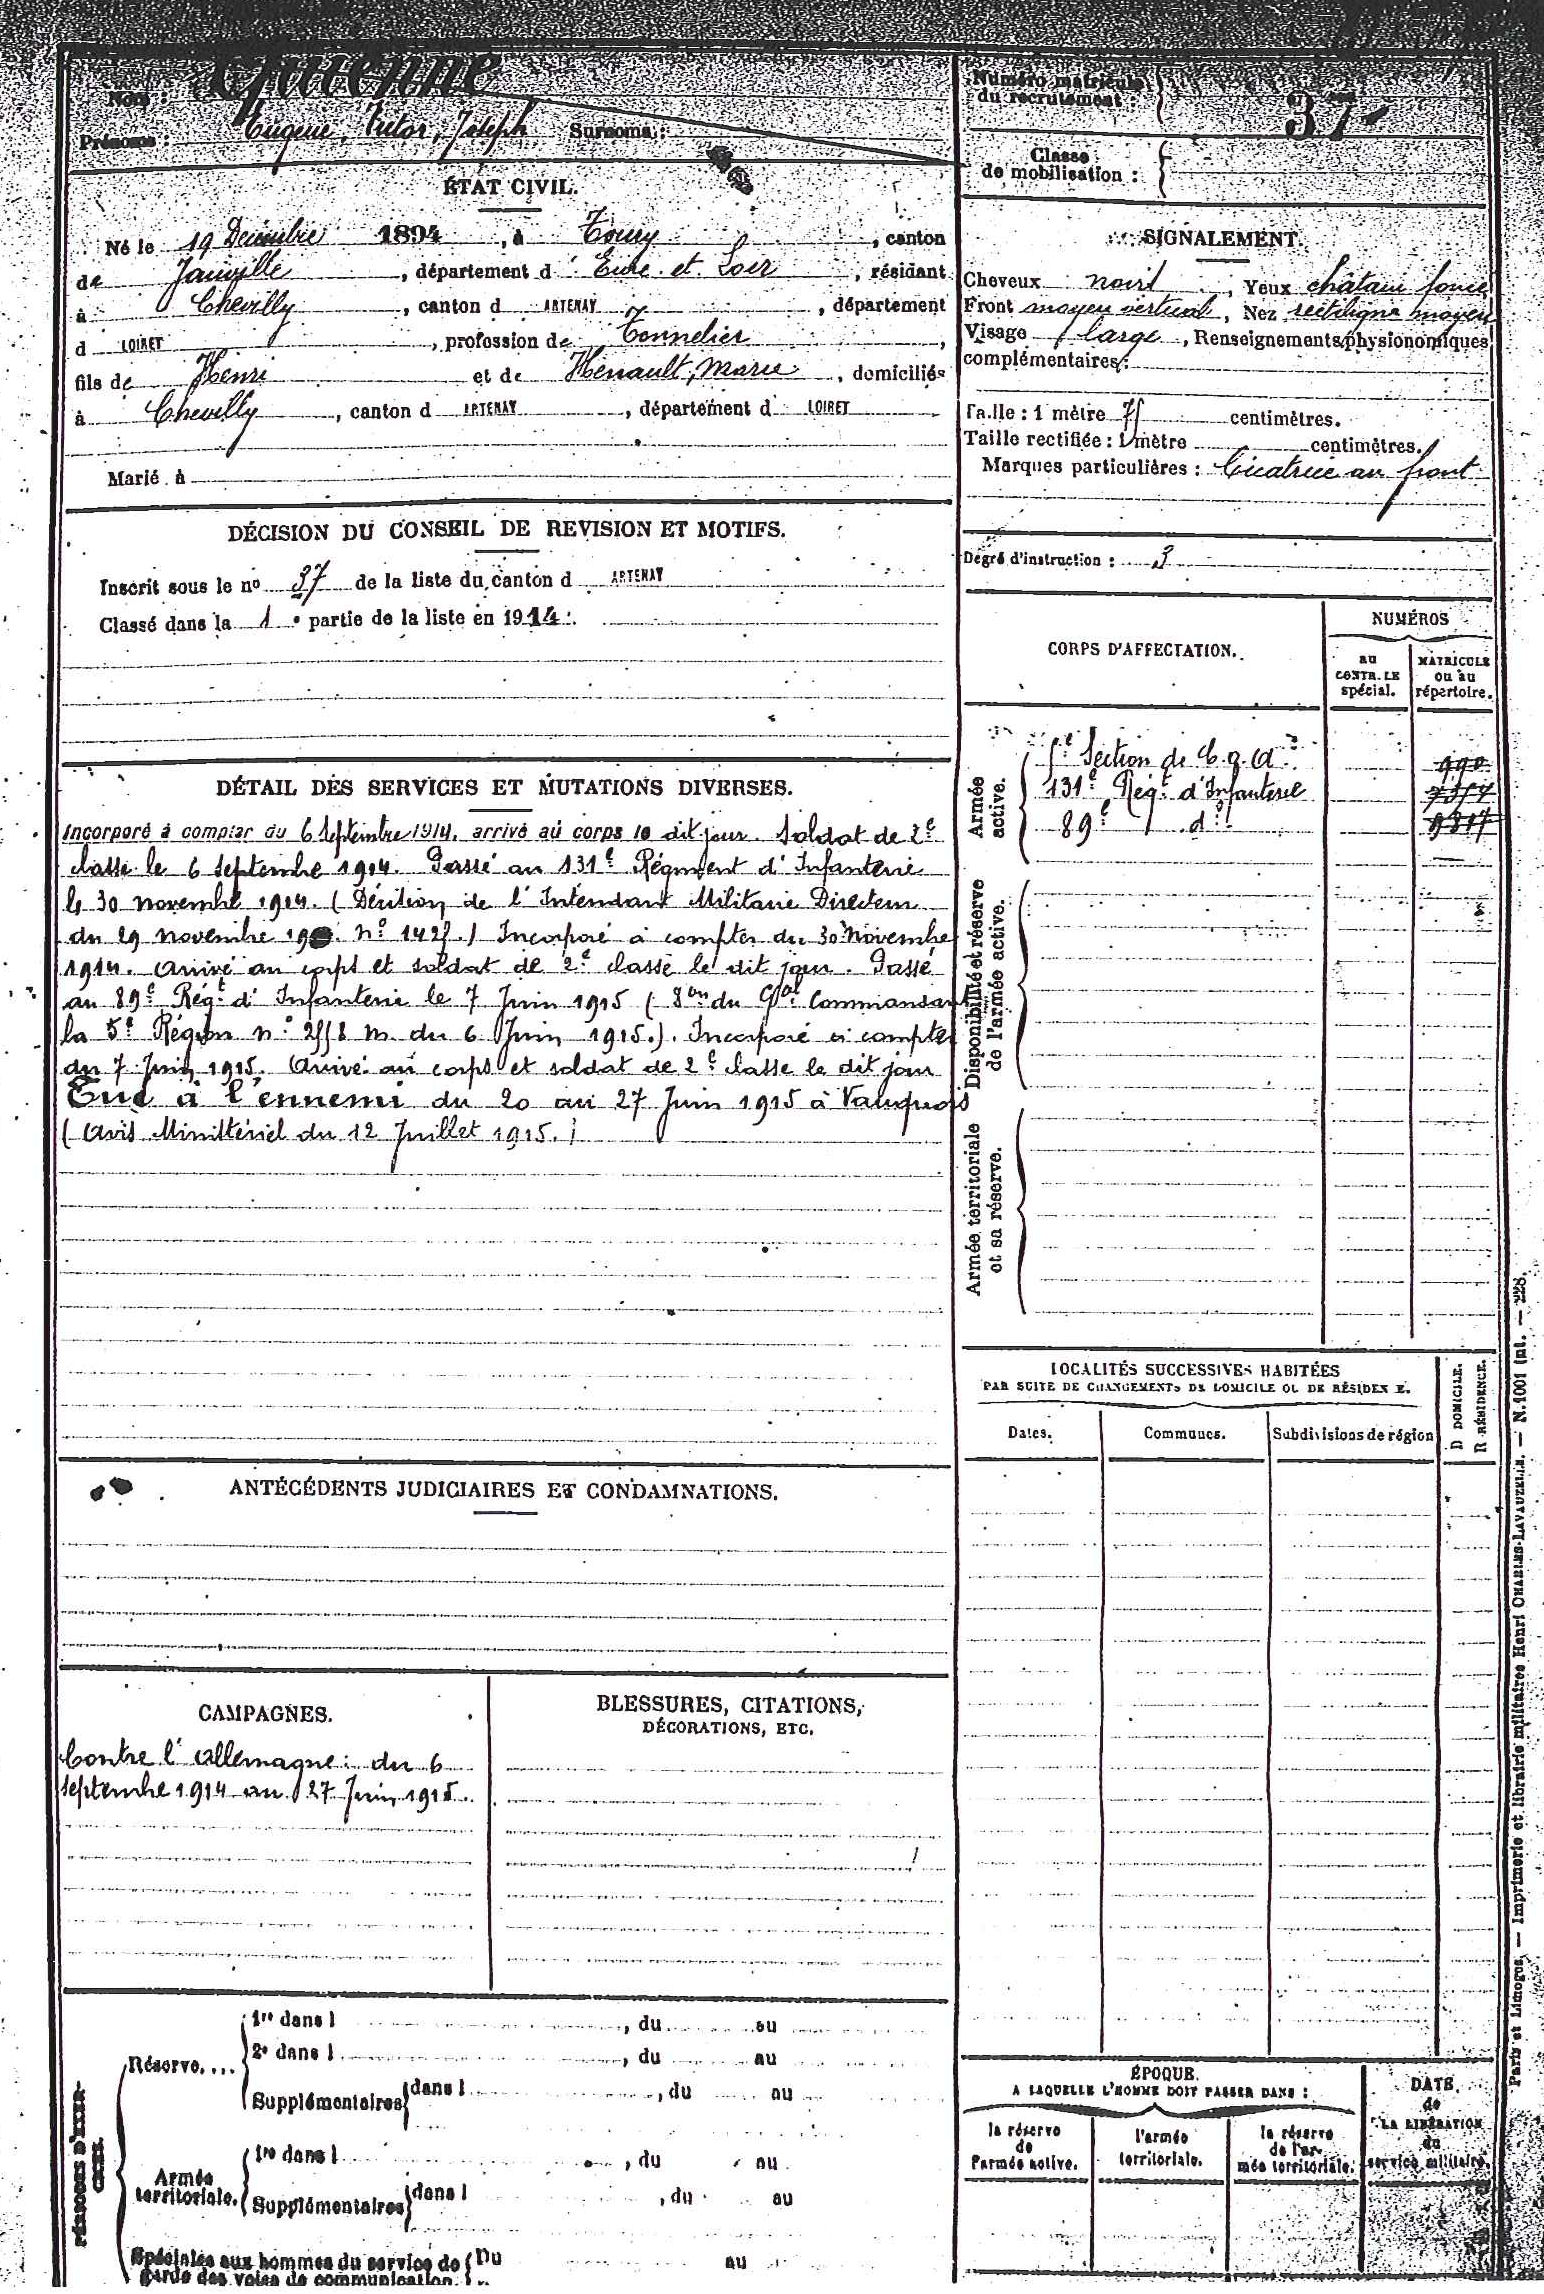 Nom :
Prénoms : Eugène, Victor, Joseph Surnoms :
Numéro matricule
du recrutement : 37
Classe
de mobilisation :
ÉTAT CIVIL.
Né le 19 Décembre 1894, à Toury, canton
de Janville, département d'Eure et Loir, résidant
à Chevilly, canton d ARTENAY, département
d LOIRET, profession de Tonnelier,
fils de Henri et de Hénault, Marie, domiciliés
à Chevilly, canton d ARTENAY, département d LOIRET
Marié à
SIGNALEMENT.
Cheveux noirs, Yeux châtain foncé
Front moyen vertical, Nez rectiligne moyen
Visage large, Renseignements physionomiques
complémentaires :
Taille : 1 mètre 75 centimètres.
Taille rectifiée : 1 mètre centimètres.
Marques particulières : Cicatrice au front
DÉCISION DU CONSEIL DE REVISION ET MOTIFS.
Inscrit sous le no 37 de la liste du canton d ARTENAY
Classé dans la 1e partie de la liste en 1914.
Degré d'instruction : 3
CORPS D'AFFECTATION.
NUMÉROS
AU CONTRÔLE spécial.
MATRICULE ou au répertoire.
Armée active.
5e Section de C.O.A. 990
131e Régt d'Infanterie
89e do
Disponibilité et réserve de l'armée active.
Armée territoriale et sa réserve.
DÉTAIL DES SERVICES ET MUTATIONS DIVERSES.
Incorporé à compter du 6 Septembre 1914. arrivé au corps le dit jour. Soldat de 2e
classe le 6 Septembre 1914. Passé au 131e Régiment d'Infanterie
le 30 novembre 1914. (Décision de l'Intendant Militaire Directeur
du 29 novembre 19 . No 1425.) Incorporé à compter du 30 Novembre
1914. Arrivé au corps et soldat de 2e classe le dit jour. Passé
au 89e Régt d'Infanterie le 7 Juin 1915 ( du Gal Commandant
la 5e Région no 2558 m. du 6 Juin 1915.). Incorporé à compter
du 7 Juin 1915. Arrivé au corps et soldat de 2e classe le dit jour
Tué à l'ennemi du 20 au 27 Juin 1915 à Vauquois
(Avis Ministériel du 12 Juillet 1915.)
LOCALITÉS SUCCESSIVES HABITÉES
PAR SUITE DE CHANGEMENTS DE DOMICILE OU DE RÉSIDENCE.
Dates. Communes. Subdivisions de région
D DOMICILE.
R RÉSIDENCE.
ANTÉCÉDENTS JUDICIAIRES ET CONDAMNATIONS.
CAMPAGNES.
Contre l'Allemagne : du 6
septembre 1914 au 27 Juin 1915.
BLESSURES, CITATIONS,
DÉCORATIONS, ETC.
PÉRIODES D'EXERCICES.
Réserve....
1re dans l , du au
2e dans l , du au
Supplémentaires dans l , du au
Armée territoriale.
1re dans l , du au
Supplémentaires dans l , du au
Spéciales aux hommes du service de Du au
garde des voies de communication.
ÉPOQUE
A LAQUELLE L'HOMME DOIT PASSER DANS :
la réserve de l'armée active.
l'armée territoriale.
la réserve de l'armée territoriale.
DATE de LA LIBÉRATION du service militaire.
Paris et Limoges. — Imprimerie et librairie militaires Henri CHARLES-LAVAUZELLE. — N. 1001 int. — 228.